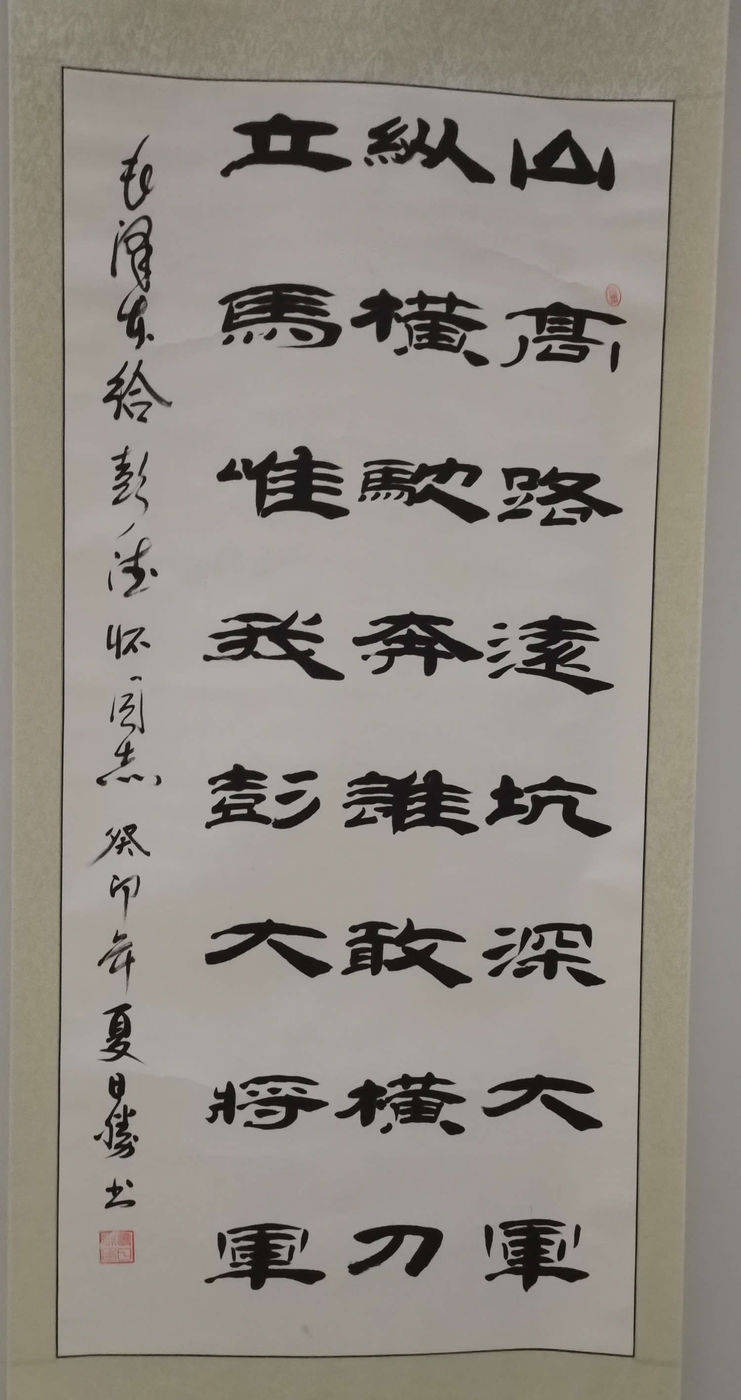 山高路遠坑深大軍
縱橫馳奔誰敢橫刀
立馬唯我彭大將軍
毛泽东给彭德怀同志 癸卯年夏日勝书